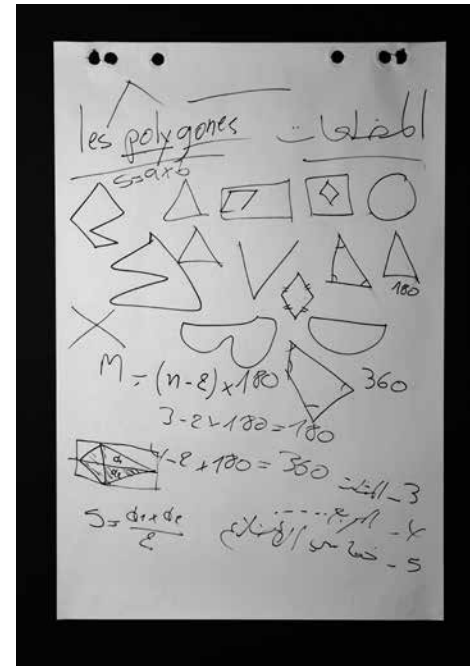 les polygones المضلعات
S=a×b
180
M=(n-2)×180 360
3-2×180=180
4-2×180=360
3_ المثلث
4_ المربع.....
S=d1×d2/2
5_ خماسي الأضلاع